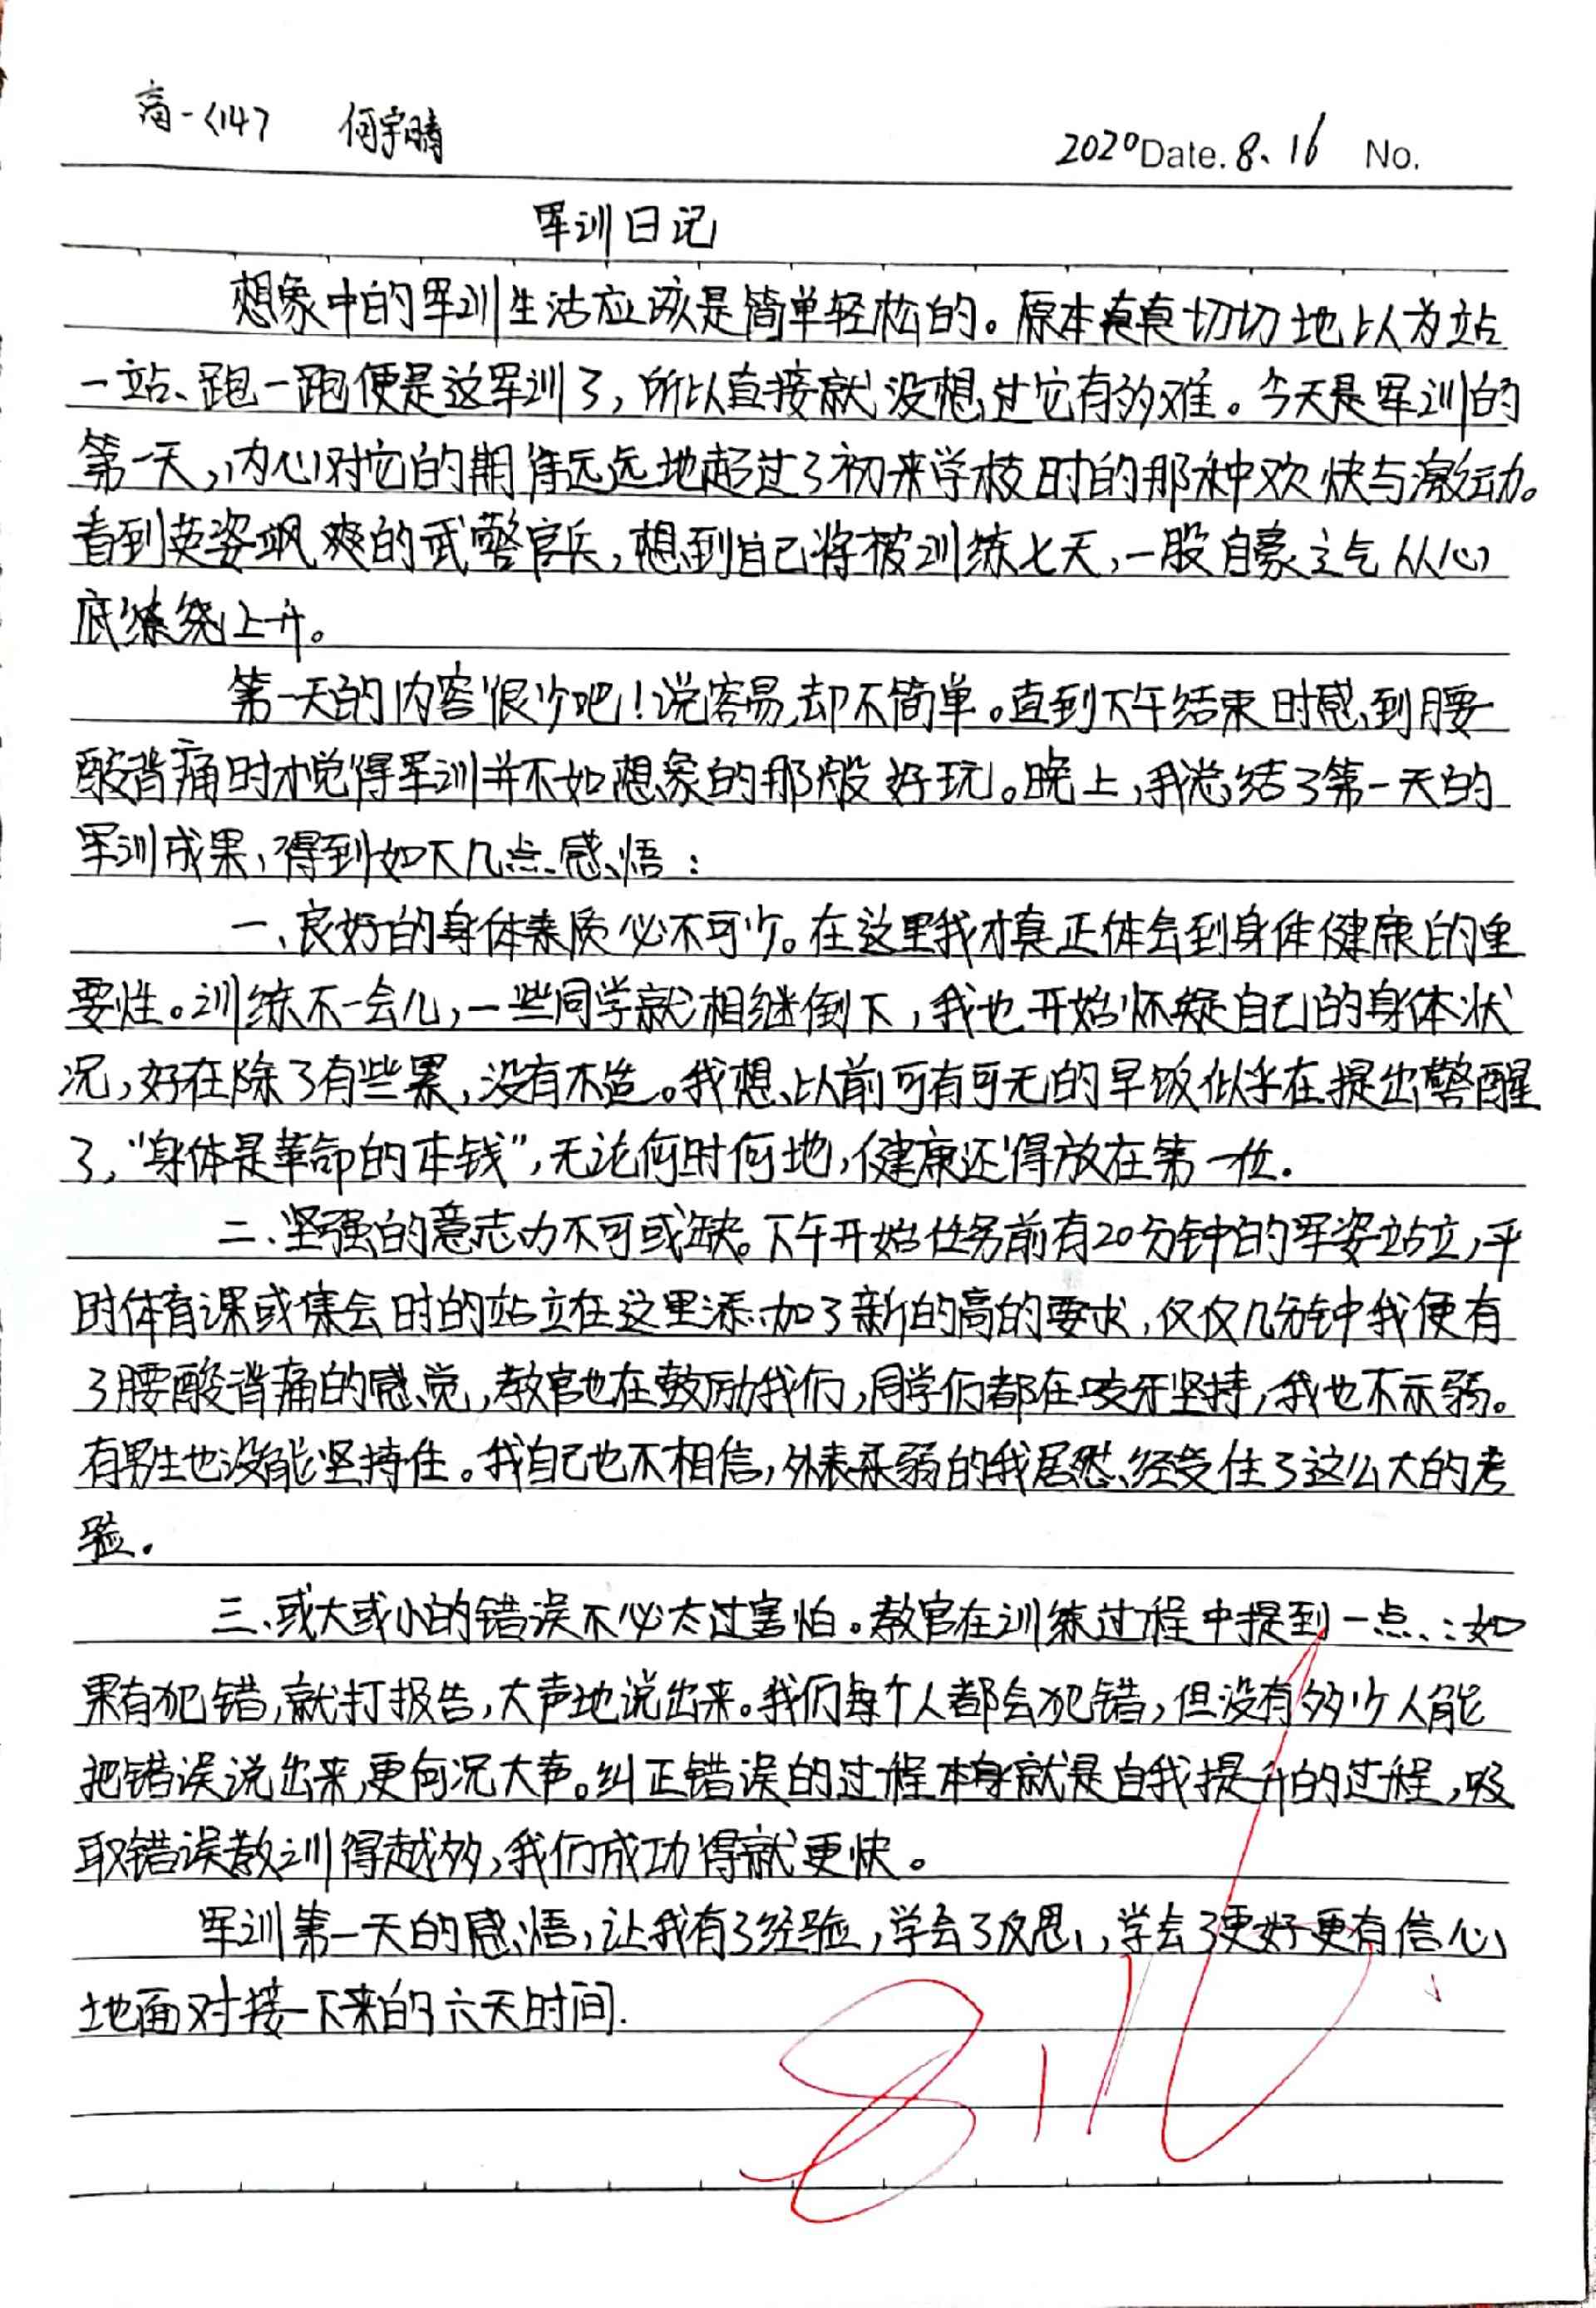 高一〈14〉 何宇晴
2020 Date. 8.16 No.
军训日记
想象中的军训生活应该是简单轻松的。原本真真切切地以为站
一站、跑一跑便是这军训了,所以直接就没想过它有多难。今天是军训的
第一天,内心对它的期待远远地超过了初来学校时的那种欢快与激动。
看到英姿飒爽的武警官兵,想到自己将被训练七天,一股自豪之气从心
底缭绕上升。
第一天的内容很少吧!说容易却不简单。直到下午结束时感到腰
酸背痛时才觉得军训并不如想象的那般好玩。晚上,我总结了第一天的
军训成果,得到如下几点感悟:
一、良好的身体素质必不可少。在这里我才真正体会到身体健康的重
要性。训练不一会儿,一些同学就相继倒下,我也开始怀疑自己的身体状
况,好在除了有些累,没有不适。我想,以前可有可无的早饭似乎在提出警醒
了,“身体是革命的本钱”,无论何时何地,健康还得放在第一位.
二、坚强的意志力不可或缺。下午开始任务前有20分钟的军姿站立,平
时体育课或集会时的站立在这里添加了新的高的要求,仅仅几分钟我便有
了腰酸背痛的感觉,教官也在鼓励我们,同学们都在咬牙坚持,我也不示弱。
有男生也没能坚持住。我自己也不相信,外表柔弱的我居然经受住了这么大的考
验.
三、或大或小的错误不必太过害怕。教官在训练过程中提到一点:如
果有犯错,就打报告,大声地说出来。我们每个人都会犯错,但没有多少人能
把错误说出来,更何况大声。纠正错误的过程本身就是自我提升的过程,吸
取错误教训得越多,我们成功得就更快。
军训第一天的感悟,让我有了经验,学会了反思,学会了更好更有信心
地面对接下来的六天时间.
8.16